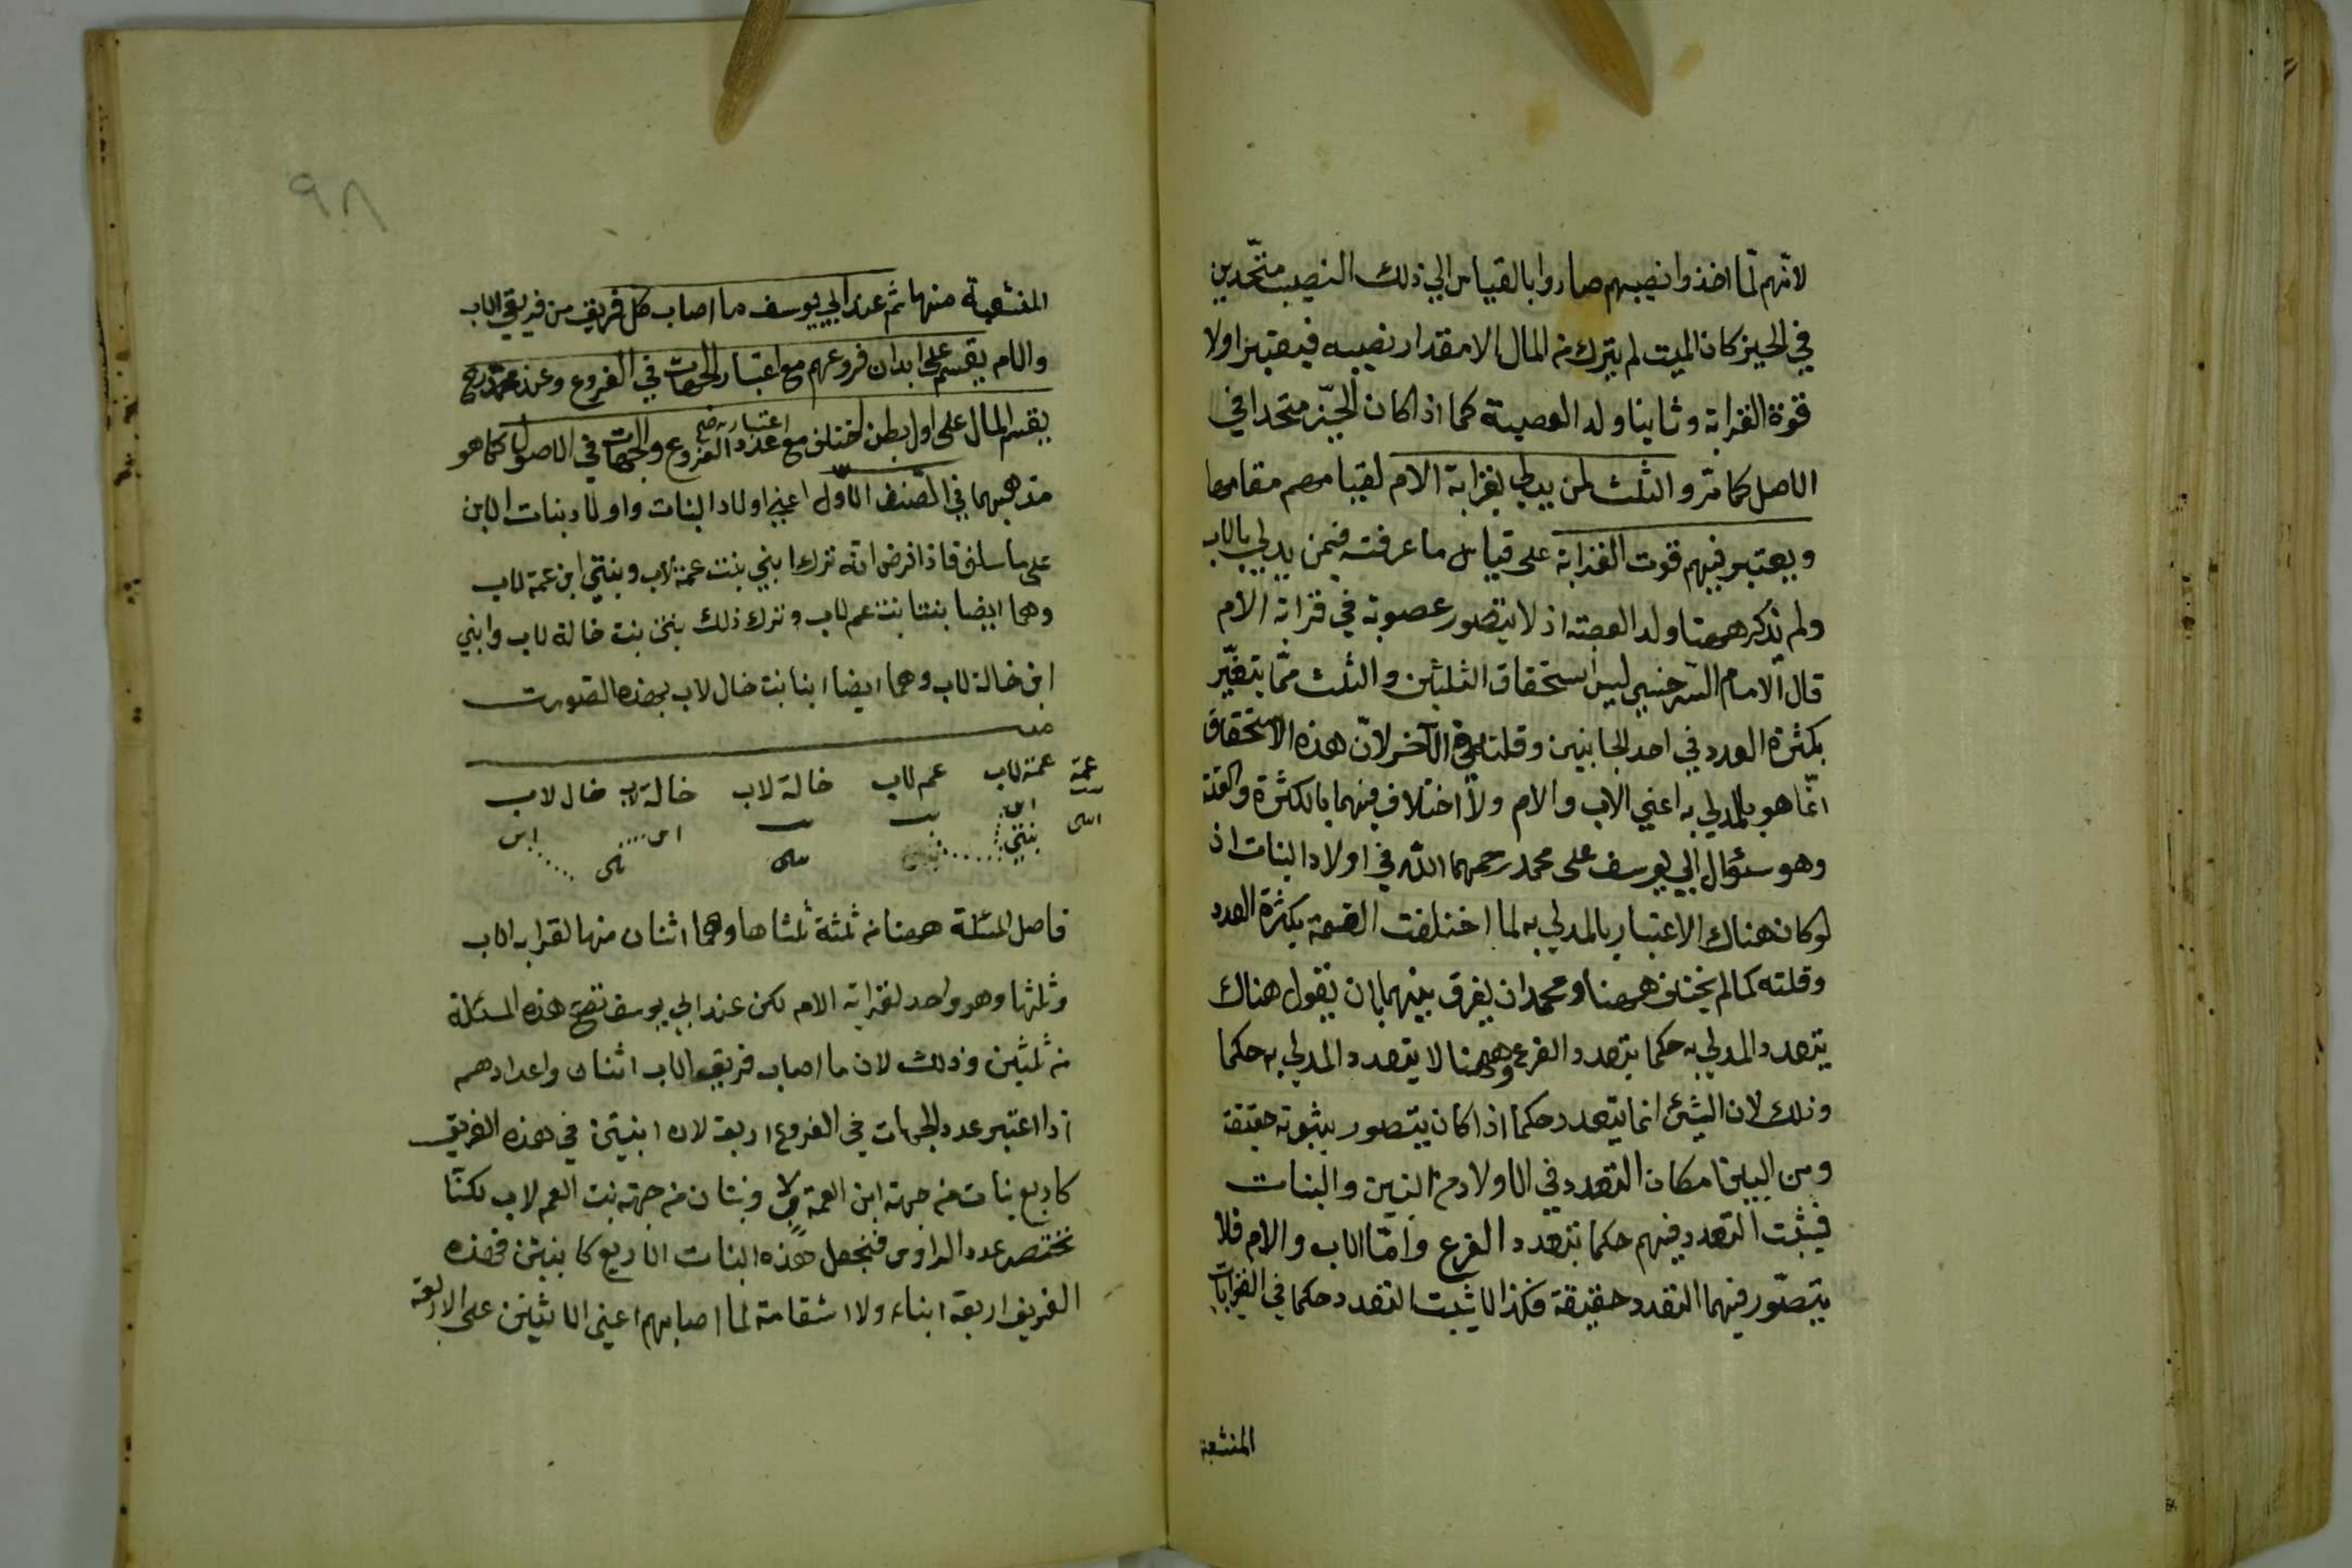 لانّهم لمّا اخذوا نصيبهم صاروا بالقياس الي ذلك النصيب متّحدين
في الحيز كان الميت لم يترك من المال الا مقدار نصيبه فيعتبر اولا
قوة القرابة وثانيا ولد العصبة كما اذا كان الحيّز متحدا في
الاصل كما مرّ والثلث لمن يدلي بقرابة الام لقيامهم مقامها
ويعتبر فيهم قوت القرابة على قياس ما عرفته فيمن يدلي بالاب
ولم يذكر ههنا ولد العصبة اذ لا يتصور عصوبة في قرابة الام
قال الامام السرخسي ليس استحقاق الثلثين والثلث ممّا يتغيّر
بكثرة العدد في احد الجانبين وقلته في الآخر لانّ هذه الاستحقاق
انّما هو بالمدلي به اعني الاب والام ولا اختلاف فيهما بالكثرة والقلة
وهو سئوال ابي يوسف على محمد رحمهما الله في اولاد البنات اذ
لو كان هناك الاعتبار بالمدلي به لما اختلفت القسمة بكثرة العدد
وقلته كما لم يختلف ههنا ومحمد ان يفرق بينهما بان يقول هناك
يتعدد المدلي به حكما بتعدد الفرع وههنا لا يتعدد المدلي به حكما
وذلك لان الشئ انما يتعدد حكما اذا كان يتصور ثبوته حقيقة
ومن البين امكان التعدد في الاولاد من البنين والبنات
فيثبت التعدد فيهم حكما بتعدد الفرع وامّا الاب والام فلا
يتصّور فيهما التعدد حقيقة فكذا لا يثبت التعدد حكما في القرابات
المنشعبة
٩٨
المنشعبة منها ثم عند ابي يوسف ما اصاب كل فريق من فريقي الاب
والام يقسم على ابدان فروعهم مع اعتبار الجهات في الفروع وعند محمد رح
يقسم المال على اول بطن اختلف مع اعتبار عدد الفروع والجهات في الاصول كما هو
مذهبهما في الصنف الاوّل اعني اولاد البنات واولاد بنات الابن
على ما سلف فاذا فرض انه ترك ابني بنت عمة لاب وبنتي ابن عمة لاب
وهما ايضا بنتا بنت عم لاب وترك ذلك بنتي بنت خالة لاب وابني
ابن خالة لاب وهما ايضا ابنا بنت خال لاب بهذه الصورت
عمة عمة لاب عم لاب خالة لاب خالة لاب خال لاب
بنت ابن بنت بنت ابن ابن
ابنى بنتي
فاصل المسئلة ههنا من ثلثة ثلثاها وهما اثنان منها لقرابة الاب
وثلثها وهو واحد لقرابة الام لكن عند ابي يوسف تصح هذه المسئلة
من ثلثين وذلك لان ما اصاب فريق الاب اثنان واعدادهم
اذا اعتبر عدد الجهات في الفروع اربعة لان ابنتين في هذه الفريق
كاربع بنات من جهة ابن العمة لاب وبنتان من جهة بنت العم لاب لكنّا
نختصر عدد الراوس فنجعل هذه البنات الاربع كابنين فهذه
الفريق اربعة ابناء ولا استقامة لما اصابهم اعني الاثنين على الاربعة